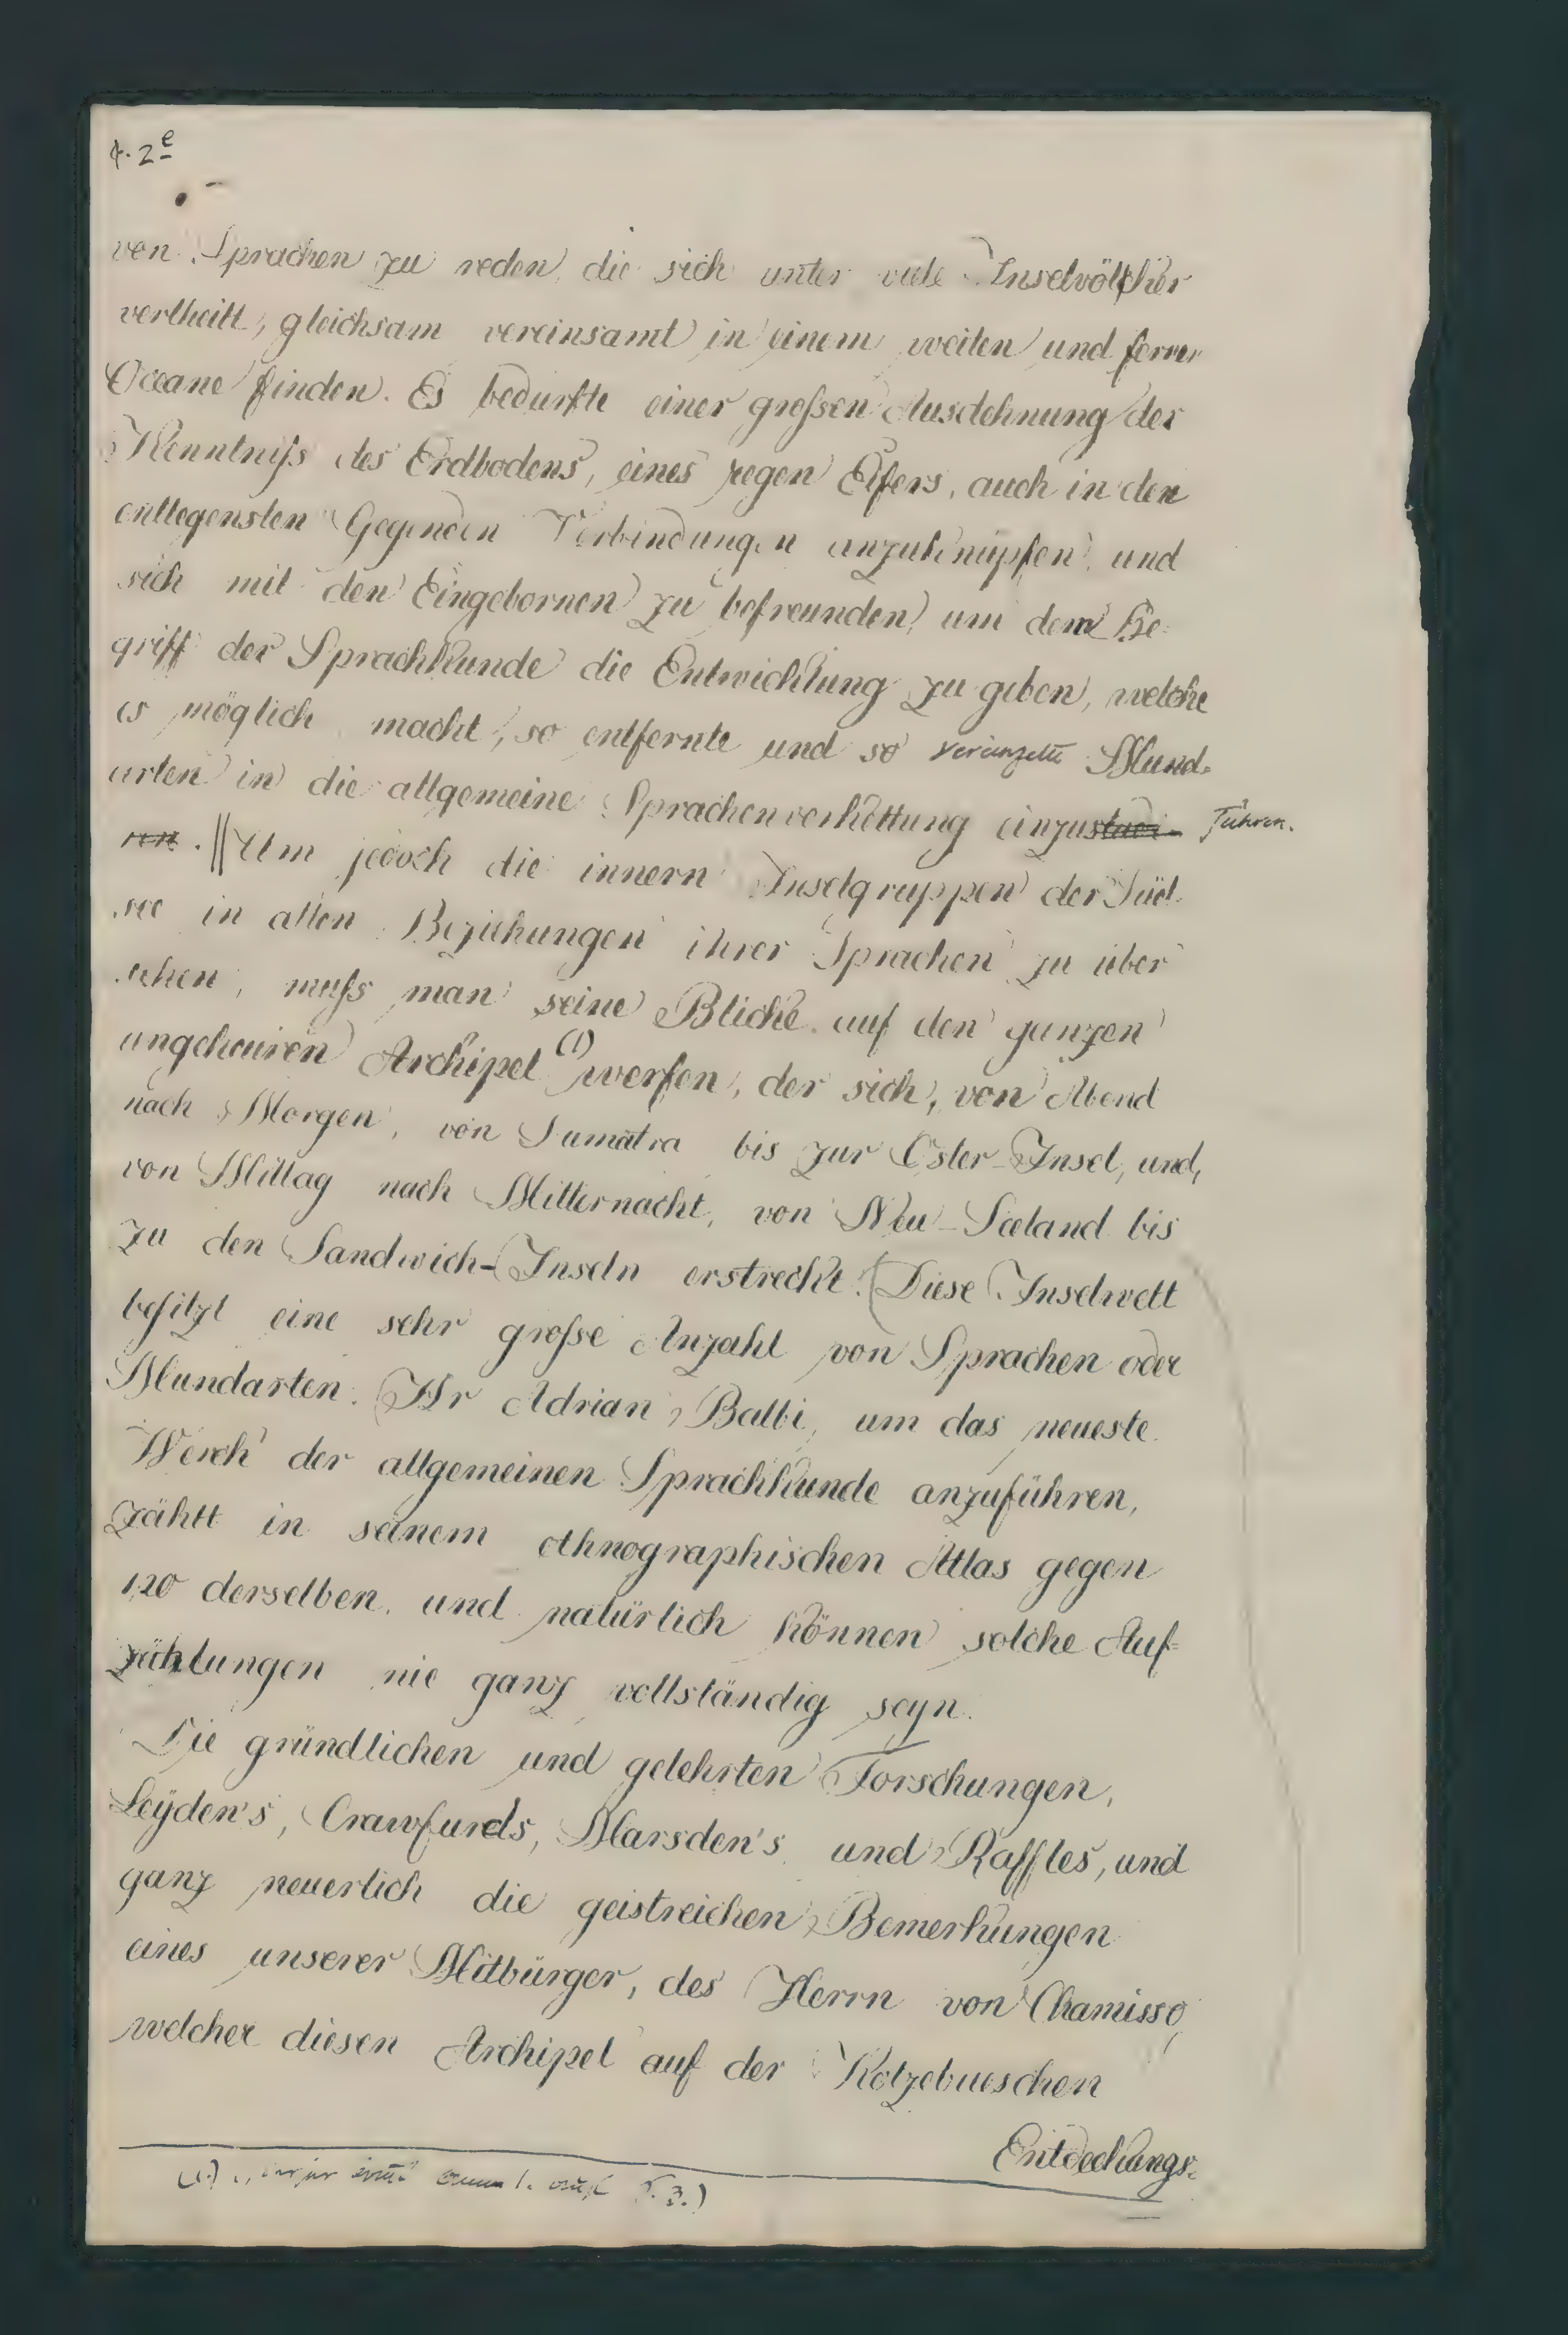 2e
von Sprachen zu reden, die sich unter viele Inselvölcker
vertheilt, gleichsam vereinsamt in einem weiten und fernen
Oceane finden. Es bedurfte einer großen Ausdehnung der
Kenntniß des Erdbodens, eines regen Eifers, auch in den
entlegensten Gegenden Verbindungen anzuknüpfen, und
sich mit den Eingebornen zu befreunden, um dem Be-
griff der Sprachkunde die Entwicklung zu geben, welche
es möglich macht, so entfernte und so vereinzelte Mund-
arten in die allgemeine Sprachenverkettung einzu führen.
. || Um jedoch die innern Inselgruppen der Süd-
see in allen Beziehungen ihrer Sprachen zu über
sehen, muß man seine Blicke auf den ganzen
ungeheuren Archipel (1) werfen, der sich, von Abend
nach Morgen, von Sumatra bis zur Oster-Insel, und,
von Mittag nach Mitternacht, von Neu-Seeland bis
zu den Sandwich-Inseln erstreckt. (Diese Inselwelt
besitzt eine sehr große Anzahl von Sprachen oder
Mundarten. Hr Adrian Balbi, um das neueste
Werck der allgemeinen Sprachkunde anzuführen,
zählt in seinem ethnographischen Atlas gegen
120 derselben, und natürlich können solche Auf-
zählungen nie ganz vollständig seyn.
Die gründlichen und gelehrten Forschungen,
Leyden's, Crawfurds, Marsden's und Raffles, und
ganz neuerlich die geistreichen Bemerkungen
eines unserer Mitbürger, des Herrn von Chamisso,
welcher diesen Archipel auf der Kotzebueschen
Entdeckungs-
(1.)